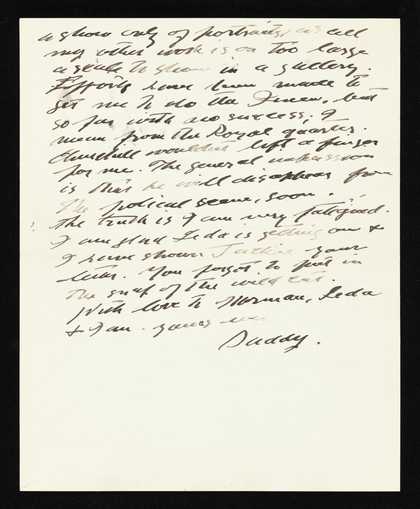 a show only of portraits, as all
my other work is on too large
a scale to show in a gallery.
Efforts have been made to
get me to do the Queen, but
so far with no success, I
mean from the Royal quarter.
Churchill wouldn't lift a finger
for me. The general impression
is that he will disappear from
the political scene, soon.
The truth is I am very fatigued.
I am glad Leda is getting on &
I have shown your
letter. You forgot to put in
the snap of the wild cat.
With love to Norman, Leda
& Ian. yours ever
Daddy.